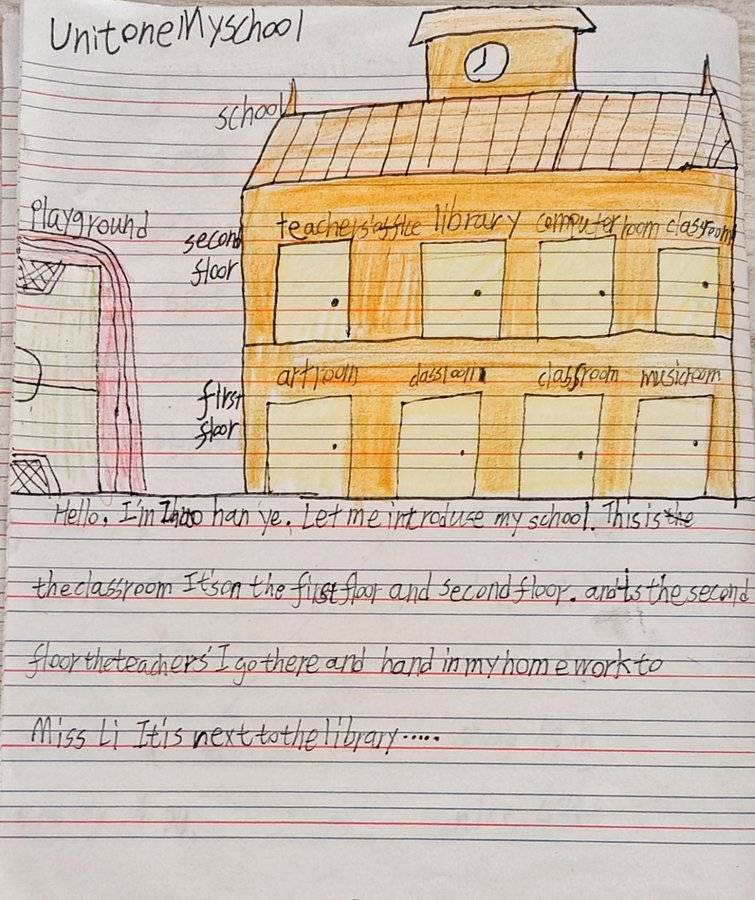 Unit one My school
school
Playground
second floor
teachers' office library computer room classroom
first floor
art room classroom classroom music room
Hello, I'm han ye. Let me introduse my school. This is the
the classroom It's on the first floor and second floor. and is the second
floor the teachers' I go there and hand in my homework to
Miss Li It is next to the library.....